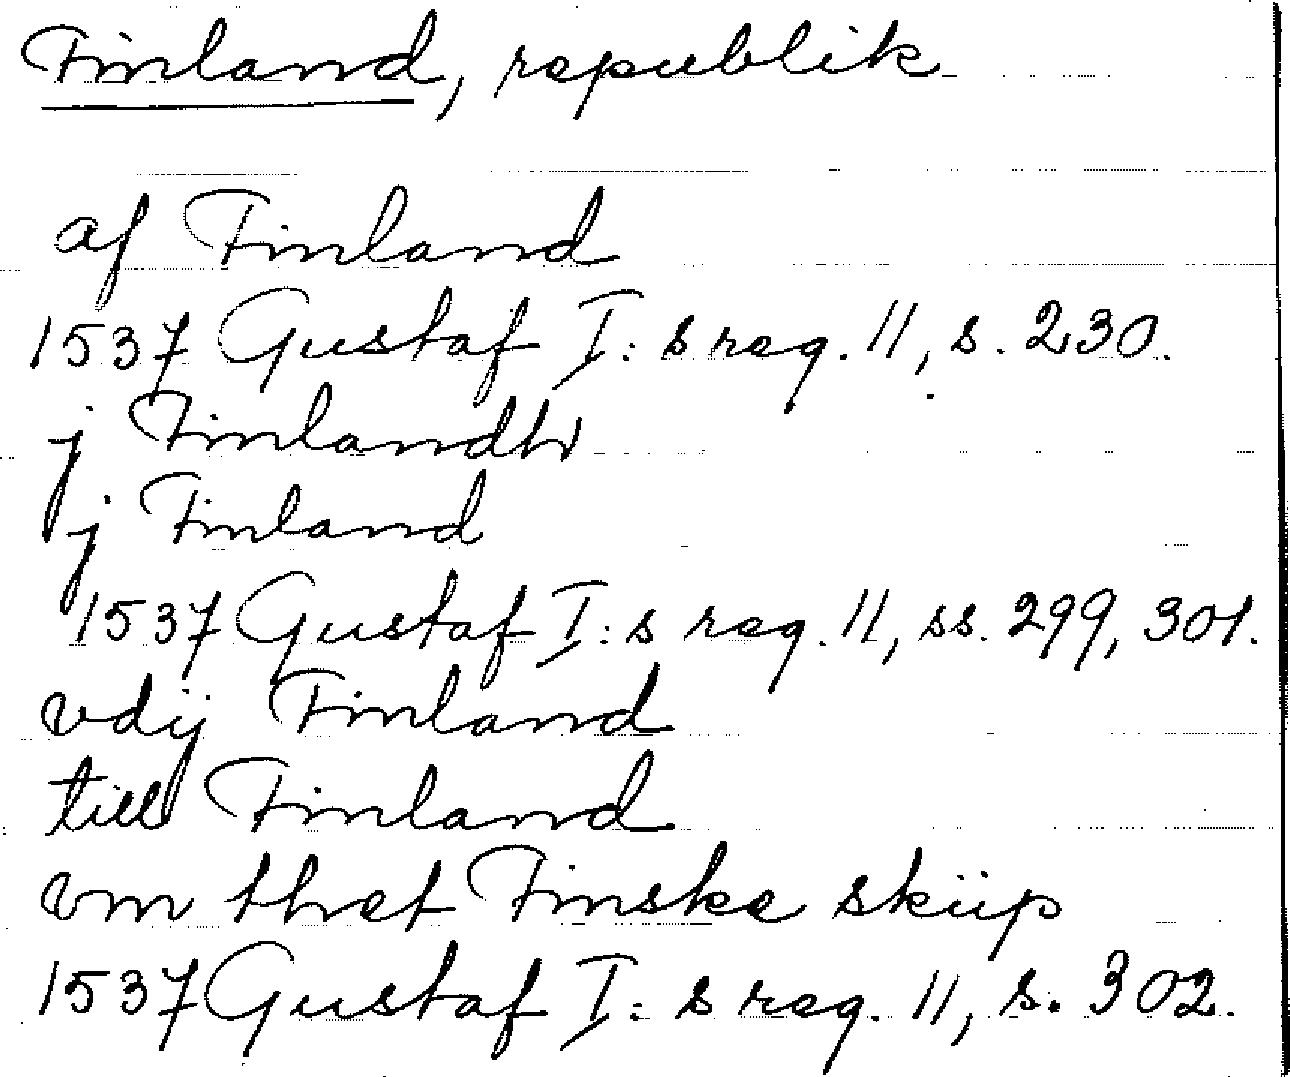 Finland, republik
af Finland
1537 Gustaf I:s reg. 11, s. 230.
j Finlandh
j Finland
1537 Gustaf I:s reg. 11, ss. 299, 301.
vdij Finland
till Finland
vm thet Finske skiip
1537 Gustaf I:s reg. 11, s. 302.